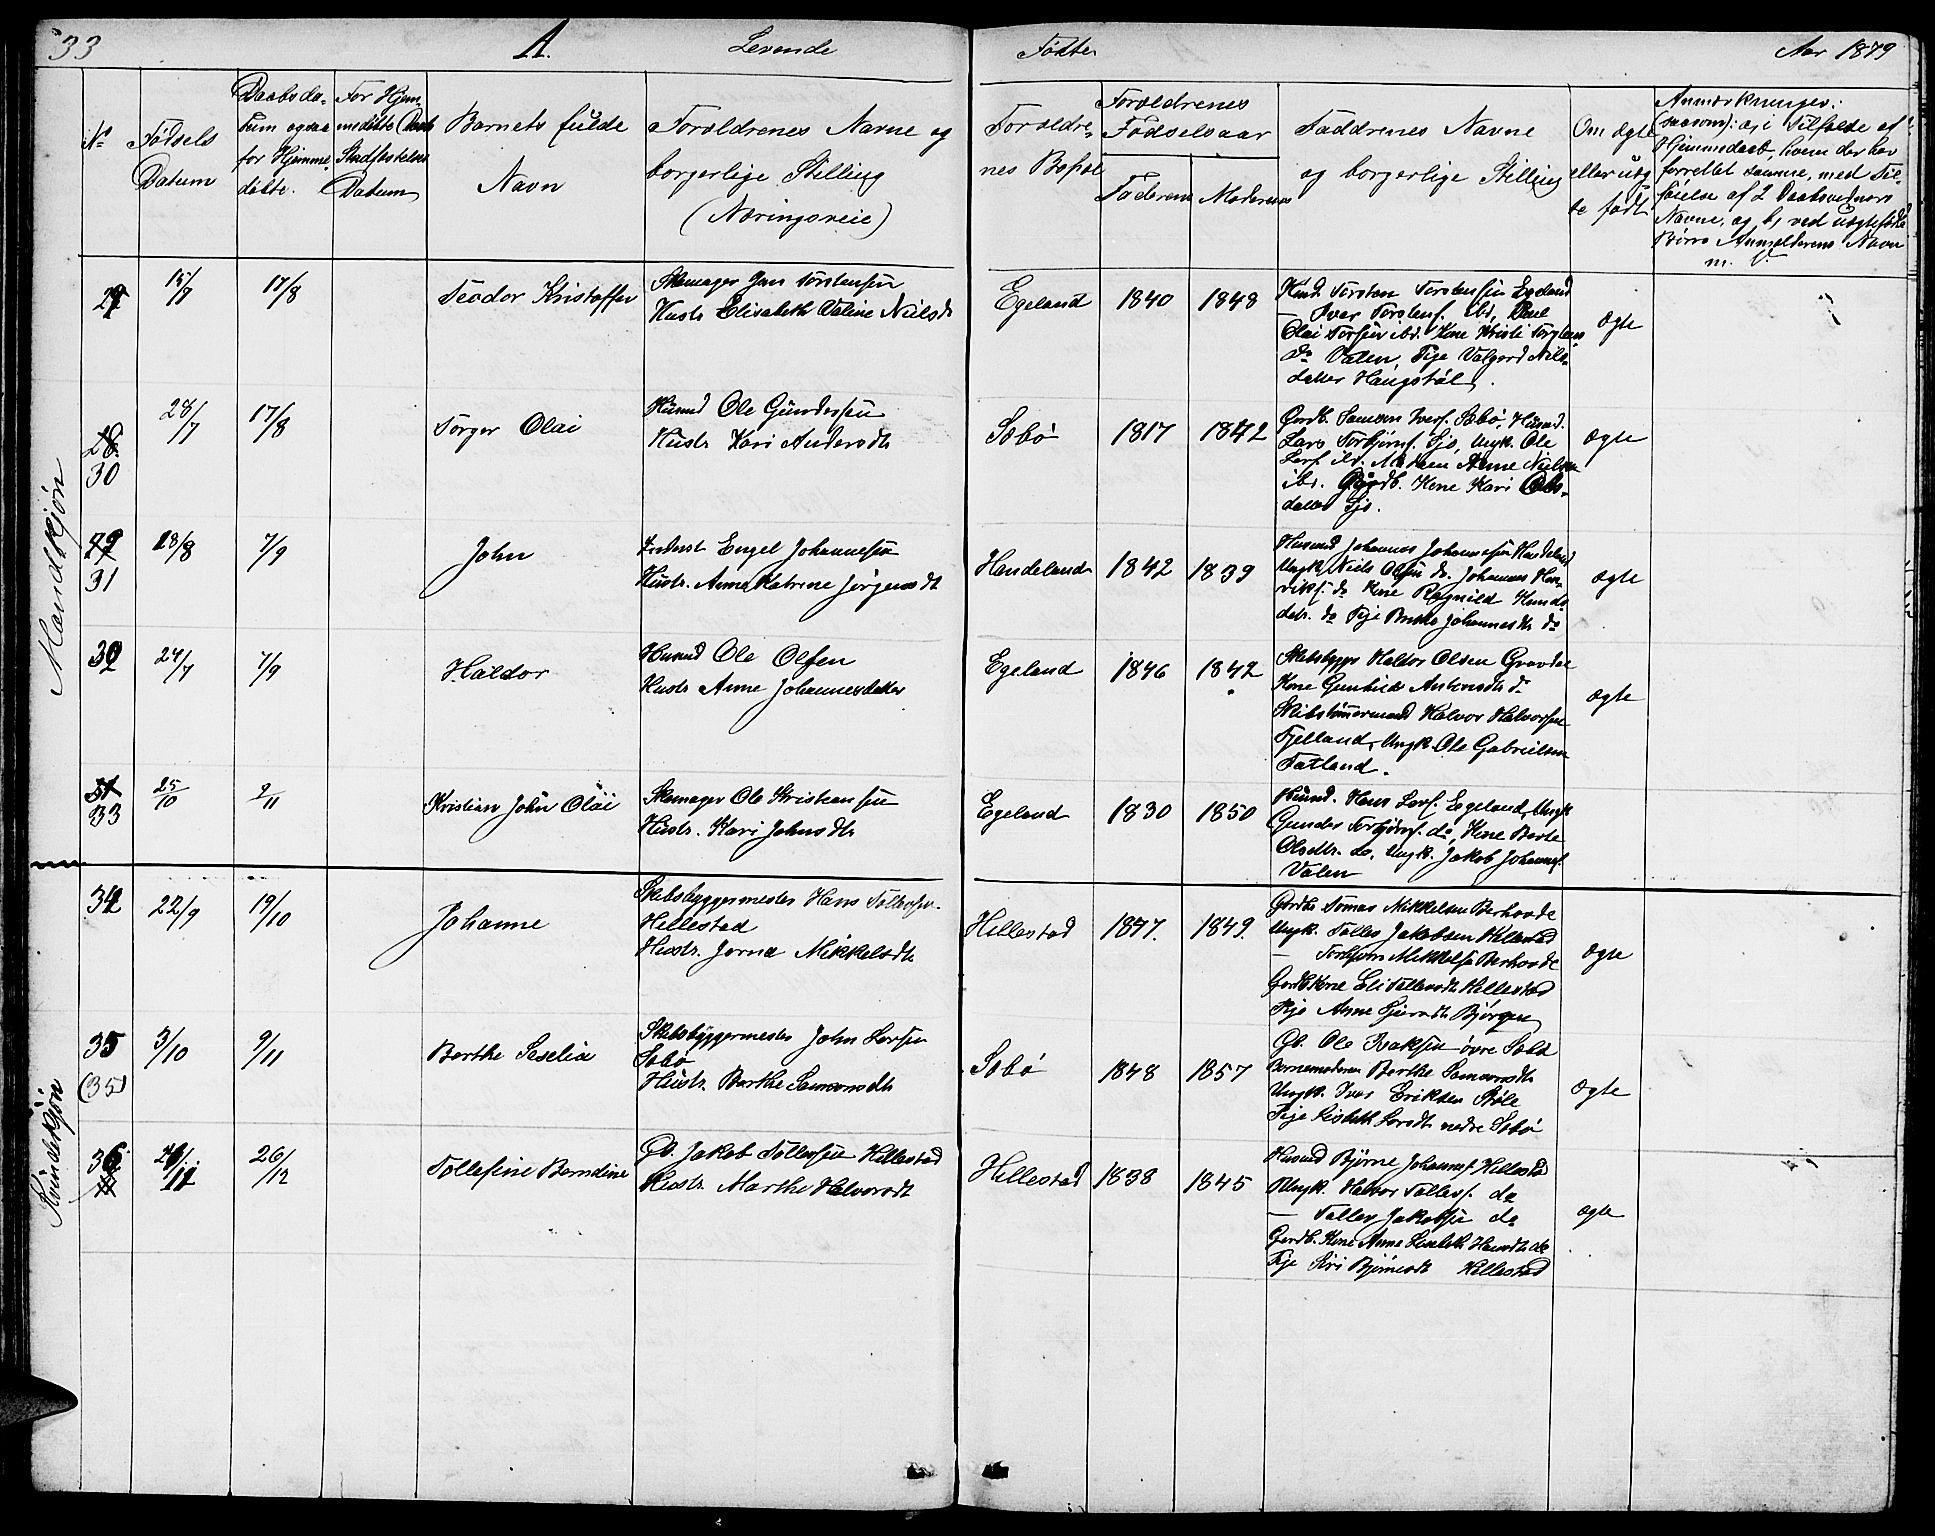 33 A. Levende Fødte Aar 1879
No
Fødsels Datum
Daabsdatum ogsaa for Hjemmedøbte.
For Hjemmedøbte Daabs Stadfæstelses Datum
Barnets fulde Navn
Forældrenes Navne og borgerlige Stilling (Næringsveie)
Forældrenes Bopæl
Forældrenes Fødselsaar
Faderens
Moderens
Faddrenes Navne og borgerlige Stilling
Om ægte eller uægte født
Anmærkninger:
(saasom): a, i Tilfælde af
Hjemmedaab, hvem der har
forrettet samme, med Til-
føielse af 2 Daabsvidners
Navne, og b, ved uægtefødte
Børn Anmelderens Navn
m. V.
Mandkjøn
29 15/7 17/8 Teodor Kristoffer
Skomager Jan Torstensen
Hustr. Elisabeth Valine Nilsd.
Egeland 1840 1848
Husmd. Torsten Torstensen Egeland
— Ivar Torstens. ibd,
Olai Torsen ibd. Kone Kristi
do Valen, Pige Valgerd Nils-
datter Haugstøl.
ægte
28 30 28/7 17/8 Torger Olai
Husmd Ole Gundersen
Hustr. Kari Andersdtr
Søbø 1817 1842
Gordb. Samson Ivers. Søbø, Husmd.
Lars Torbjørns. Sjo, Ungk. Ole
Lars. ibd. Anne Niels
ibd. Gordb. Kone Kari Ols-
datter Sjo.
ægte
29 31 18/8 7/9 John
Inderst Engel Johannesen
Hustr. Anne Katrine Jørgensdt
Handeland 1842 1839
Husmd Johannes Johannesen Handeland
Ungk. Niels Olsen do. Johannes Hen-
riks. do Kone Ragnild Knuds-
datr. do Pige Johannesdtr do
ægte
32 24/7 7/9 Haldor
Husmd Ole Olsen
Hustr Anne Johannesdatter
Egeland 1846 1842
Skibsbygger Haldor Olsen Gravdal
Kone Gunhild do
Skibstømmermand Halvor Halvorsen
Fjelland, Ungk. Ole Gabrielsen
Tatland.
ægte
31 33 25/10 9/11 Kristian John Olai
Skomager Ole Kristiansen
Hustr. Kari Johnsdtr
Egeland 1830 1850
Husmd. Hans Lars. Egeland, Ungk
Gunder Torbjørns. do, Kone Berte
Olsdtr. do, Ungk. Jakob Johannes.
Valen
Kvindekjøn
34 22/9 19/10 Johanne
Skibsbyggermester Hans Tollevsen
Hillestad
Hustr. Jorna Mikkelsdtr
Hillestad 1847. 1849.
Gordbr Tomas Mikkelsen Berhovde
Ungk. Tolles Jakobsen Hillestad
— Torbjørn Mikkelsen Berhovde
Gordb. Kone Eli Tollevsdtr Hillestad
Pige Anne Bjørgen
ægte
35 (35) 3/10 9/11 Berthe Seselia
Skibsbyggermester John Larsen
Søbø
Hustr. Berthe Samsonsdtr
Søbø 1848 1857
Gb. Ole Isaksen øvre
Barnemoderen Berthe Samsonsdtr
Ungk. Iver Eriksen Støle
Pige Lisbeth Larsdtr nedre Søbø
ægte
36 11 26/12 Tollefine Berndine
Gb. Jakob Tollevsen Hillestad
Hustr. Marthe Halvorsdt
Hillestad 1838 1845
Husmd Bjørne Johannes. Hillestad
Ungk. Halvor Tolless. do
— Tolles Jakobsen do
Gordb. Kone Anne Liselbeth Hansdtr do
Pige Siri Bjørnesdt Hillestad
ægte